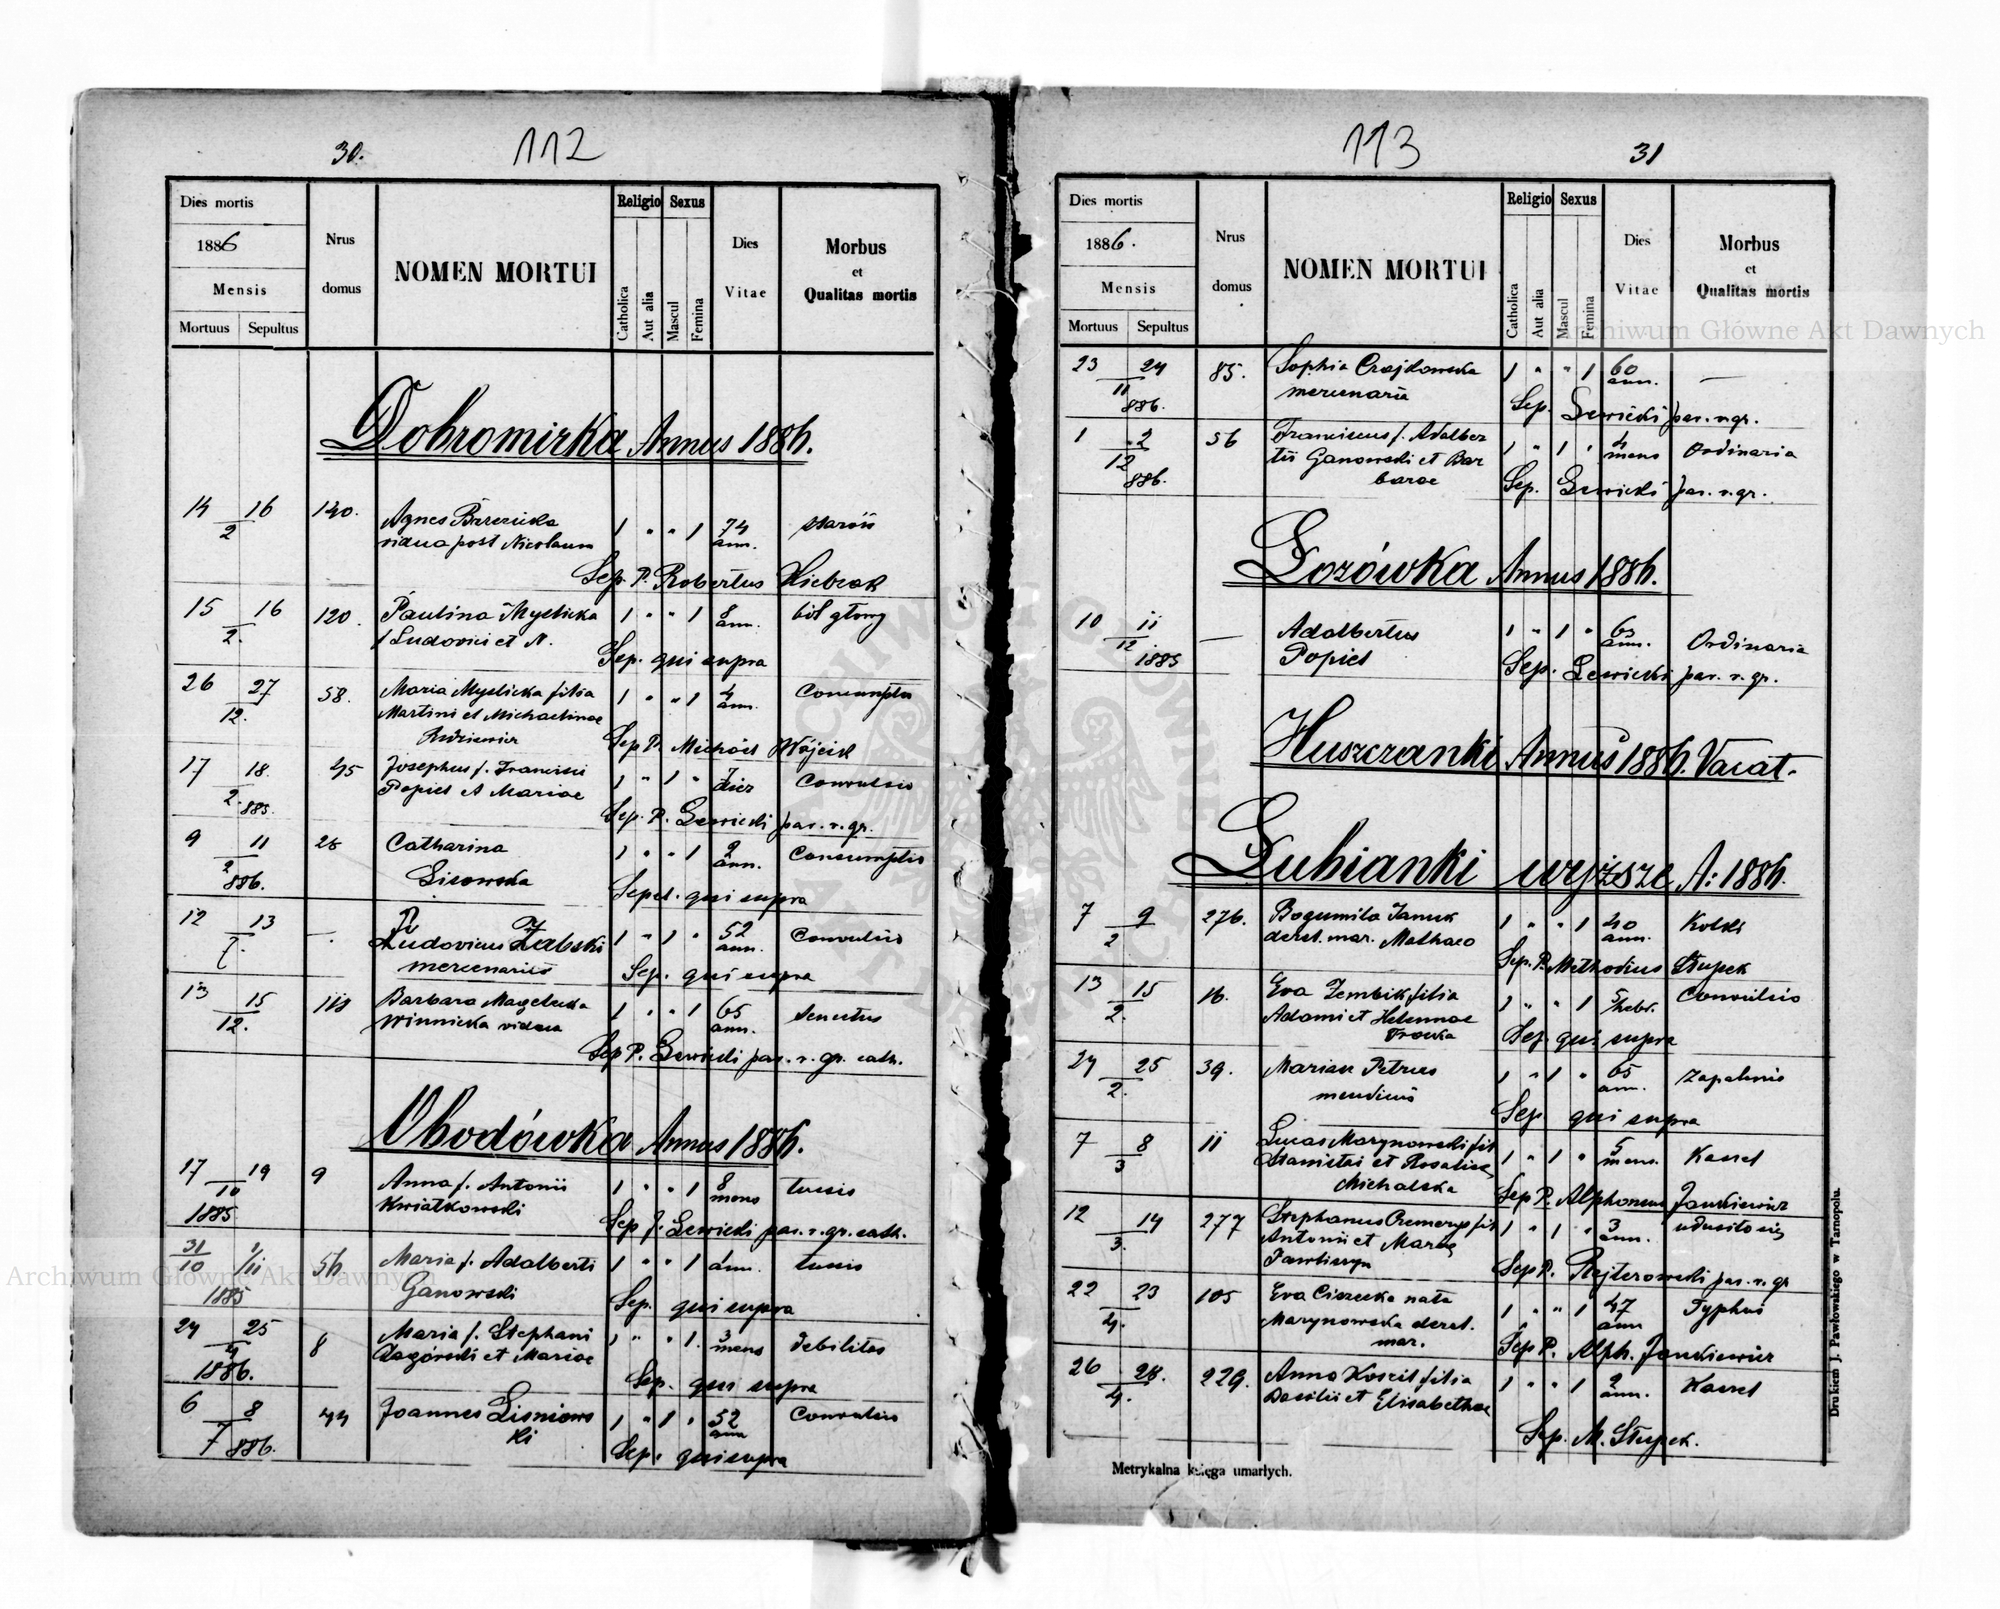 30.
112
Dies mortis
1886
Mensis
Mortuus Sepultus
Nrus domus
NOMEN MORTUI
Religio
Catholica
Aut alia
Sexus
Mascul
Femina
Dies Vitae
Morbus
et
Qualitas mortis
Dobromirka Annus 1886.
14 16 140. Agnes 1 " " 1 74
2 vidua post Nicolaum ann.
Sep. P. Robertus
15 16 120. Paulina Myslicka 1 " " 1 8 ból głowy
2. f Ludovici et N. ann.
Sep. qui supra
26 27 58. Maria Myslicka filia 1 " " 1 4
12. Martini et Michaelinae ann.
Sep P. Michael Wójcik
17 18. 45 Josephus f. Francisci 1 " 1 " 7 Convulsio
2. 885. Popiel et Mariae dies
Sep. P. Lewicki par. r. gr.
9 11 28 Catharina 1 " " 1 2 Consumptio
2 886. Lisowska ann.
Sepel. qui supra
12 13 —. Ludovicus Żabski 1 " 1 " 52 Convulsio
mercenarius ann.
Sep. qui supra
13 15 118 Barbara 1 " " 1 65 Senectus
12. Winnicka vidua ann.
Sep P. Lewicki par. r. gr. cath.
Obodówka Annus 1886.
17 19 9 Anna f. Antonii 1 " " 1 8 tussis
10 Kwiatkowski mens
1885
Sep f. Lewicki par. r. gr. cath.
31 1/11 56 Maria f. Adalberti 1 " " 1 ann. tussis
10 Ganowski
1885
Sep. qui supra
24 25 8 Maria f. Stephani 1 " " 1. 3 debilitas
4 Zagórski et Mariae mens
1886.
Sep. qui supra
6 8 44 Joannes Lisniows 1 " 1 " 52 Convulsio
7 886. ki ann
Sep. qui supra
113
31
Dies mortis
1886.
Mensis
Mortuus Sepultus
Nrus domus
NOMEN MORTUI
Religio
Catholica
Aut alia
Sexus
Mascul
Femina
Dies Vitae
Morbus
et
Qualitas mortis
23 24 85. Sophia Czajkowska 1 " " 1 60 —
11 mercenaria ann.
886. Sep. Lewicki par. r. gr.
1 2 56 Franciscus f. Adalber 1 " 1 " 4 Ordinaria
12 tii Ganowski et Bar mens
886. barae Sep. Lewicki par. r. gr.
Łozówka Annus 1886.
10 11 — Adalbertus 1 " 1 " 65 Ordinaria
12 Popiel ann.
1885 Sep. Lewicki par. r. gr.
Huszczanki Annus 1886. Vacat.
Łubianki wyższe A: 1886.
7 9 276. Bogumila 1 " " 1 40 Kolki
2 derel. mar. Mathaeo ann.
Sep. P. Methodius Słupek
13 15 16. Eva Zembik filia 1 " " 1 5 Convulsio
2. Adami et Helennae hebr.
Sep. qui supra
24 25 39. Marian Petrus 1 " 1 " 65 Zapalenie
2. mendicus ann.
Sep qui supra
7 8 11 Lucas Marynowski fil 1 " 1 " 5 Kaszel
3 Stanislai et Rosaliae mens.
Michalska
Sep P. Alphonsus Jankiewicz
12 14 277 Stephanus fil 1 " 1 " 3 udusiło się
3. Antonii et Mariae ann.
Sep P. Rejterowski par. r. gr
22 23 105 Eva nata 1 " " 1 47 Typhus
4. Marynowska derel. ann
mar.
Sep P. Alph. Jankiewicz
26 28. 229. Anna filia 1 " " 1 2 Kaszel
4. Basilii et Elisabethae ann.
Sep. M. Słupek.
Metrykalna księga umarłych.
Drukiem J. Pawłowskiego w Tarnopolu.
Archiwum Główne Akt Dawnych
Archiwum Główne Akt Dawnych